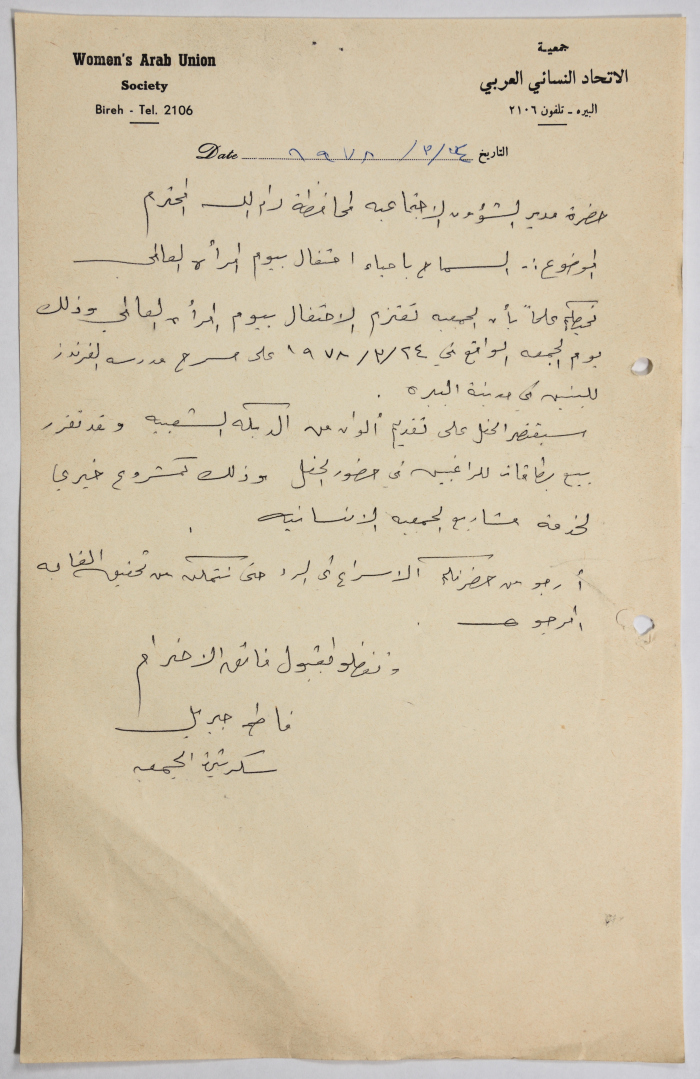 Women's Arab Union
Society
Bireh - Tel. 2106
جمعية
الاتحاد النسائي العربي
البيره - تلفون ٢١٠٦
Date ١٩٧٨ /٣/ ٢٤ التاريخ
حضرة مدير الشؤون الاجتماعيه لمحافظة رام الله المحترم
الموضوع :- السماح باحياء احتفال بيوم المرأه العالمي
نحيطكم علماً بأن الجمعيه تعتزم الاحتفال بيوم المرأه العالمي وذلك
يوم الجمعه الواقع في ٢٤/ ٣/ ١٩٧٨ على مسرح مدرسه الفرندز
للبنين في مدينة البيره .
سيقتصر الحفل على تقديم ألوان من الدبكه الشعبيه وقد تقرر
بيع بطاقات للراغبين في حضور الحفل وذلك كمشروع خيري
لخدمة مشاريع الجمعيه الانسانيه .
أرجو من حضرتكم الاسراع في الرد حتى نتمكن من تحقيق الغايه
المرجوه .
وتفضلوا بقبول فائق الاحترام
فاطمه جبريل
سكرتيرة الجمعيه